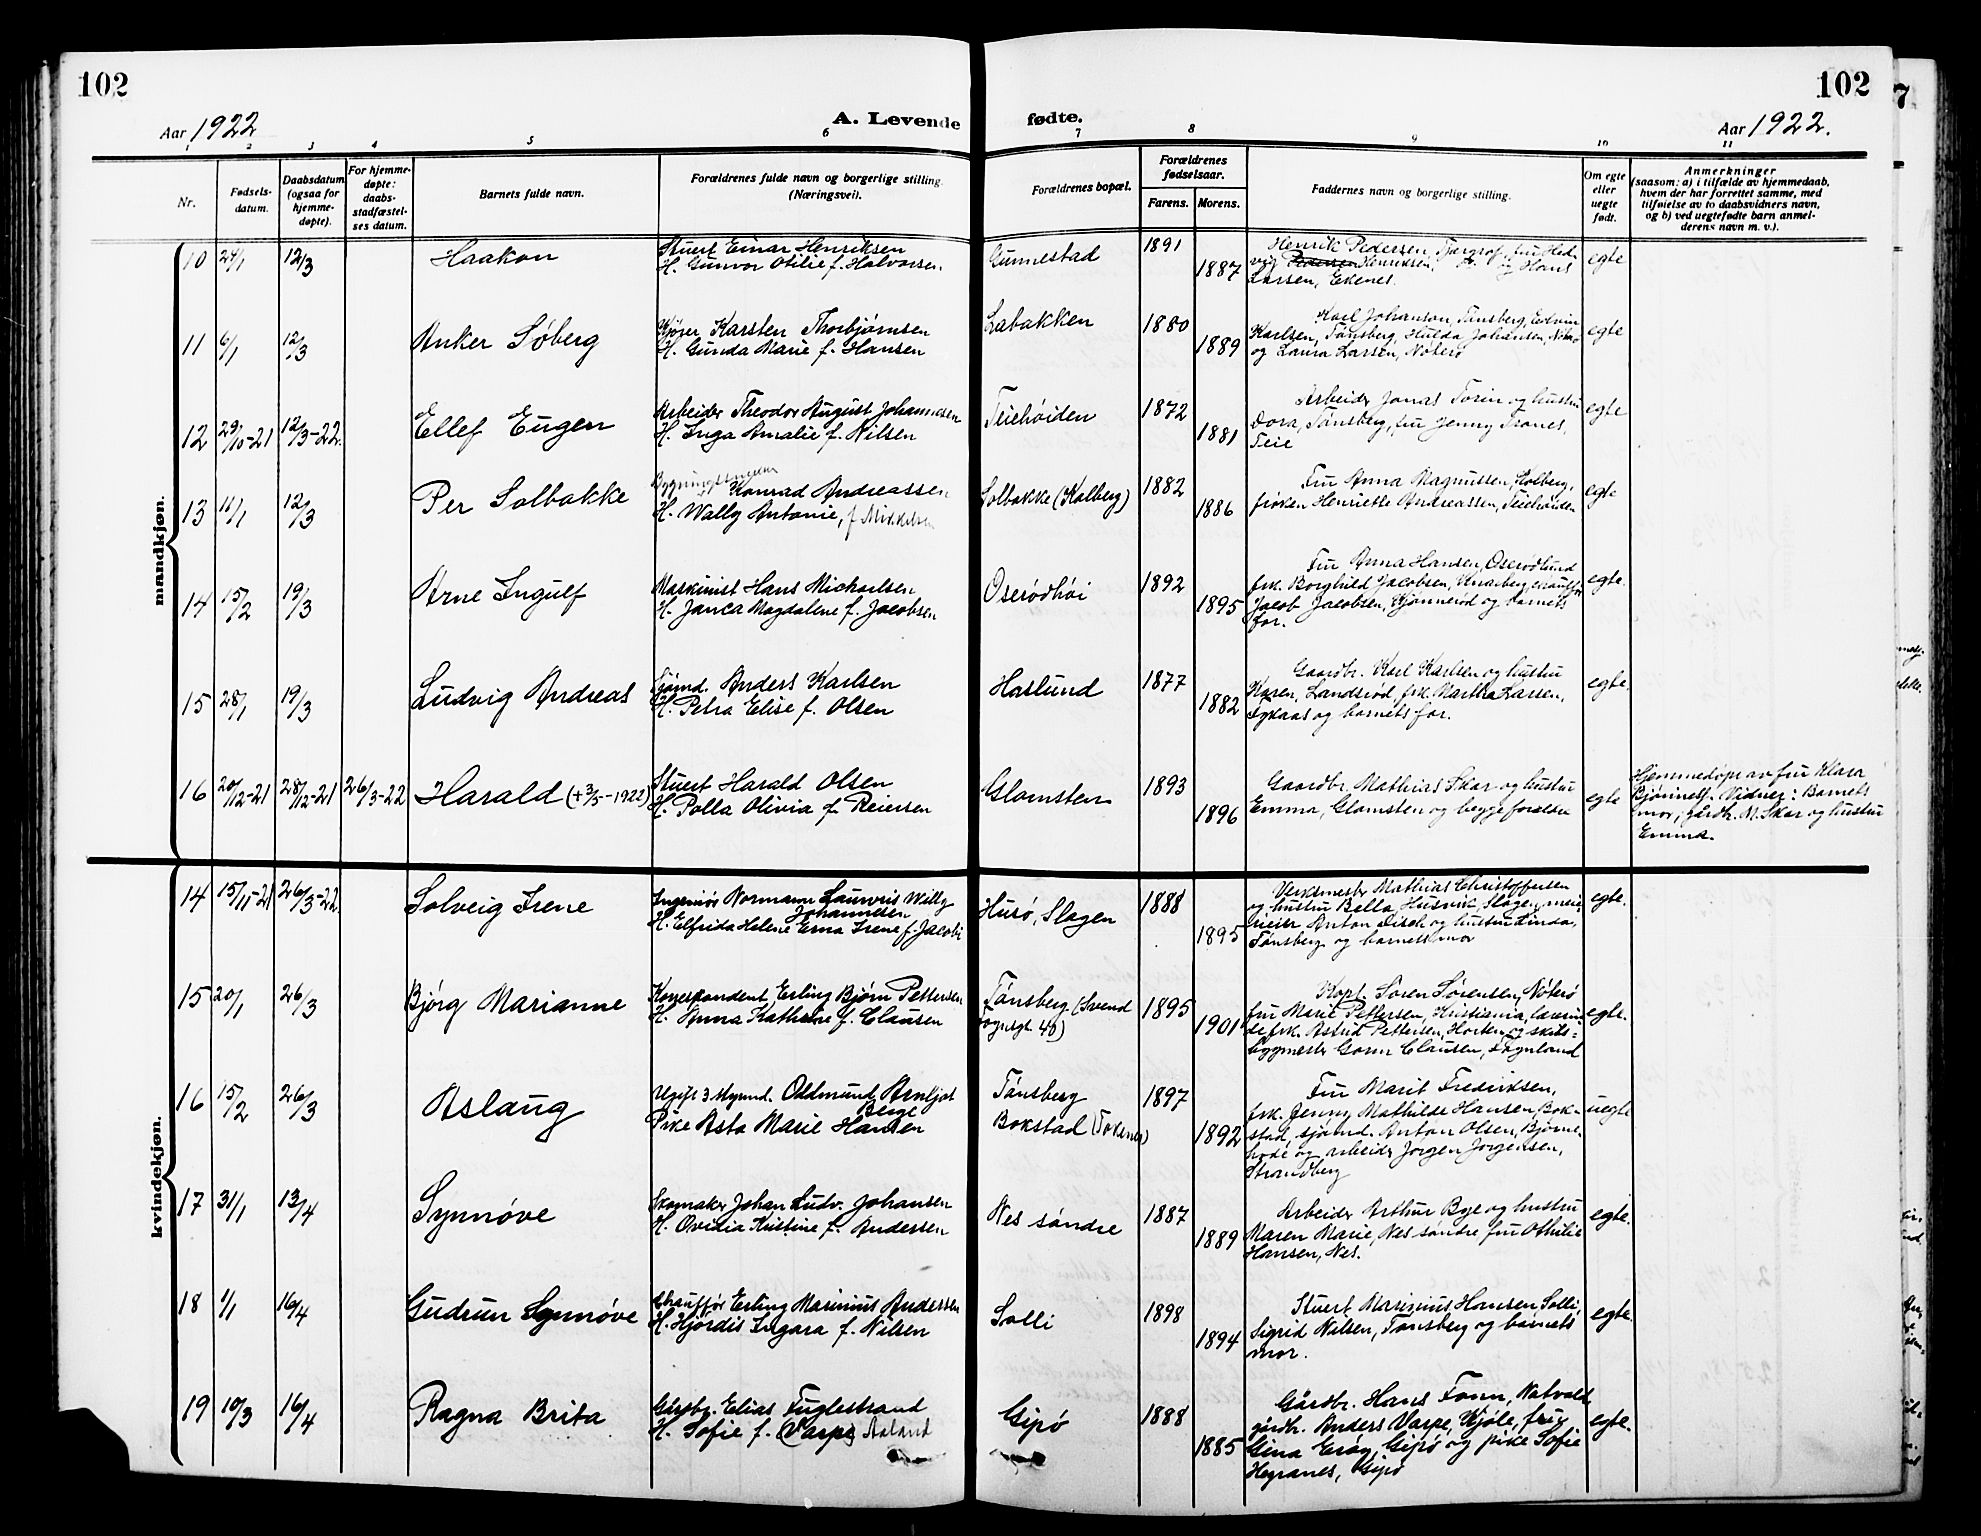 102
102
Aar 1922
A. Levende fødte.
Aar 1922.
1 2 3 4 5 6 7 8 9 10 11
Nr.
Fødsels-
datum.
Daabsdatum
(ogsaa for
hjemme-
døpte).
For hjemme-
døpte:
daabs-
stadfæstel-
ses datum.
Barnets fulde navn.
Forældrenes fulde navn og borgerlige stilling.
(Næringsvei).
Forældrenes bopæl.
Forældrenes
fødselsaar.
Farens. Morens.
Faddernes navn og borgerlige stilling.
Om egte
eller
uegte
født.
Anmerkninger
(saasom: a) i tilfælde av hjemmedaab,
hvem der har forrettet samme, med
tilføielse av to daabsvidners navn,
og b) ved uegtefødte barn anmel-
derens navn m. v.).
mandkjøn.
10 24/1 12/3 Haakon
Stuert Einar Henriksen
H. Gunvor Otilie f. Halvorsen
Gunnestad 1891 1887
Henrik Pedersen, fru Hed-
vig Pedersen Henriksen, Hans
Larsen, Ekenes.
egte
11 6/1 12/3 Anker Söberg
Kjører Karsten Thorbjørnsen
H. Gunda Marie f. Hansen
Labakken 1880 1889
Karl Johanson, Tønsberg, Edvin
Karlsen, Tønsberg, Hulda Johansen,
og Laura Larsen, Nøterø
egte
12 29/10-21 12/3-22. Ellef Eugen
Arbeider Theodor August Johannesen
H. Inga Amalie f. Nilsen
Teiehöiden 1872 1881
Arbeider Jonas Torin og hustru
Dora, Tønsberg, fru Jenny Trones,
Teie
egte
13 11/1 12/3 Per Solbakke
Konrad Andreassen
H. Wally Antonie, f. Mikkelsen
Solbakke (Kolberg) 1882 1886
Fru Anna Magnussen, Kolberg,
frøken Henriette Andreassen, Teiehöiden
egte
14 15/2 19/3 Arne Ingulf
Maskinist Hans Michaelsen
H. Janca Magdalene f. Jacobsen
Oserödhöi 1892 1895
Fru Anna Hansen, Oserödlund
frk. Borghild Jacobsen,
Jacob Jacobsen, Kjønnerød og barnets
far.
egte.
15 28/1 19/3 Ludvig Andreas
Sjömd. Anders Karlsen
H. Petra Elise f. Olsen
Haslund 1877 1882
Gaardbr. Karl Karlsen og hustru
Karen, Landsröd, frk. Martha Larsen,
og barnets far.
egte.
16 20/12-21 28/12-21 26/3-22 Harald (+3/5-1922)
Stuert Harald Olsen
H. Polla Olivia f. Reiersen
Glomsten 1893 1896
Gaardbr. Mathias Skar og hustru
Emma, Glomsten og begge foreldre
egte
Hjemmedøpt av fru Klara
Vidner: Barnets
mor, gårdbr. M. Skar og hustru
Emma.
kvindekjøn.
14 15/11-21 26/3-22. Solveig Irene
Ingeniør Normann Lauvris Willy
Johannesen
H. Elfrida Helene Erna Irene f. Jacobi
Husö, Slagen 1888 1895
Verksmester Mathias Christoffersen
og hustru Bella, Husvik, Slagen, mei-
rieier Anton og hustru Linda,
Tønsberg og barnets mor
egte.
15 20/1 26/3 Bjórg Marianne
Korrespondent Erling Bjørn Pettersen
H. Anna Kathrine f. Clausen
Tønsberg (Svend
Foynsgt. 4b) 1895 1901
Kapt. Soren Sörensen, Nöterö
fru Marie Pettersen, Kristiania, lærerin-
de frk. Astrid Pettersen, Horten og skibs-
byggmester Gorm Clausen, Føynland
egte.
16 15/2 26/3 Aslaug
Ugift Oddmund Arnljot
Berge
Pike Asta Marie Hansen
Tønsberg
Bokstad 1897 1892
Fru Marit Fredriksen,
frk. Jenny Mathilde Hansen, Bok-
stad, sjømd. Anton Olsen, Bjørne-
bode og arbeider Jørgen Jørgensen,
Strandberg
uegte
17 31/1 13/4 Synnóve
Skomaker Johan Ludv. Johansen
H. Ovidia Kristine f. Andersen
Nes söndre 1887 1889
Arbeider Arthur Bye og hustru
Maren Marie, Nes söndre fru Othilie
Hansen, Nes.
egte.
18 1/1 16/4 Gudrun Synnóve
Chauffør Erling Marinius Andersen
H. Hjördis Ingara f. Nilsen
Solli 1898 1894
Stuert Marinius Hansen, Solli,
Sigrid Nilsen, Tønsberg og barnets
mor.
egte.
19 10/3 16/4 Ragna Brita
Elias Fuglestrand
H. Sofie f. (Varpe) Aaland
Gipö 1888 1885
Gårdbr. Hans Tonn,
gårdbr. Anders Varpe, Kjøle, fru
Gina Gipö og pike Sofie
Hegranes, Gipö
egte.